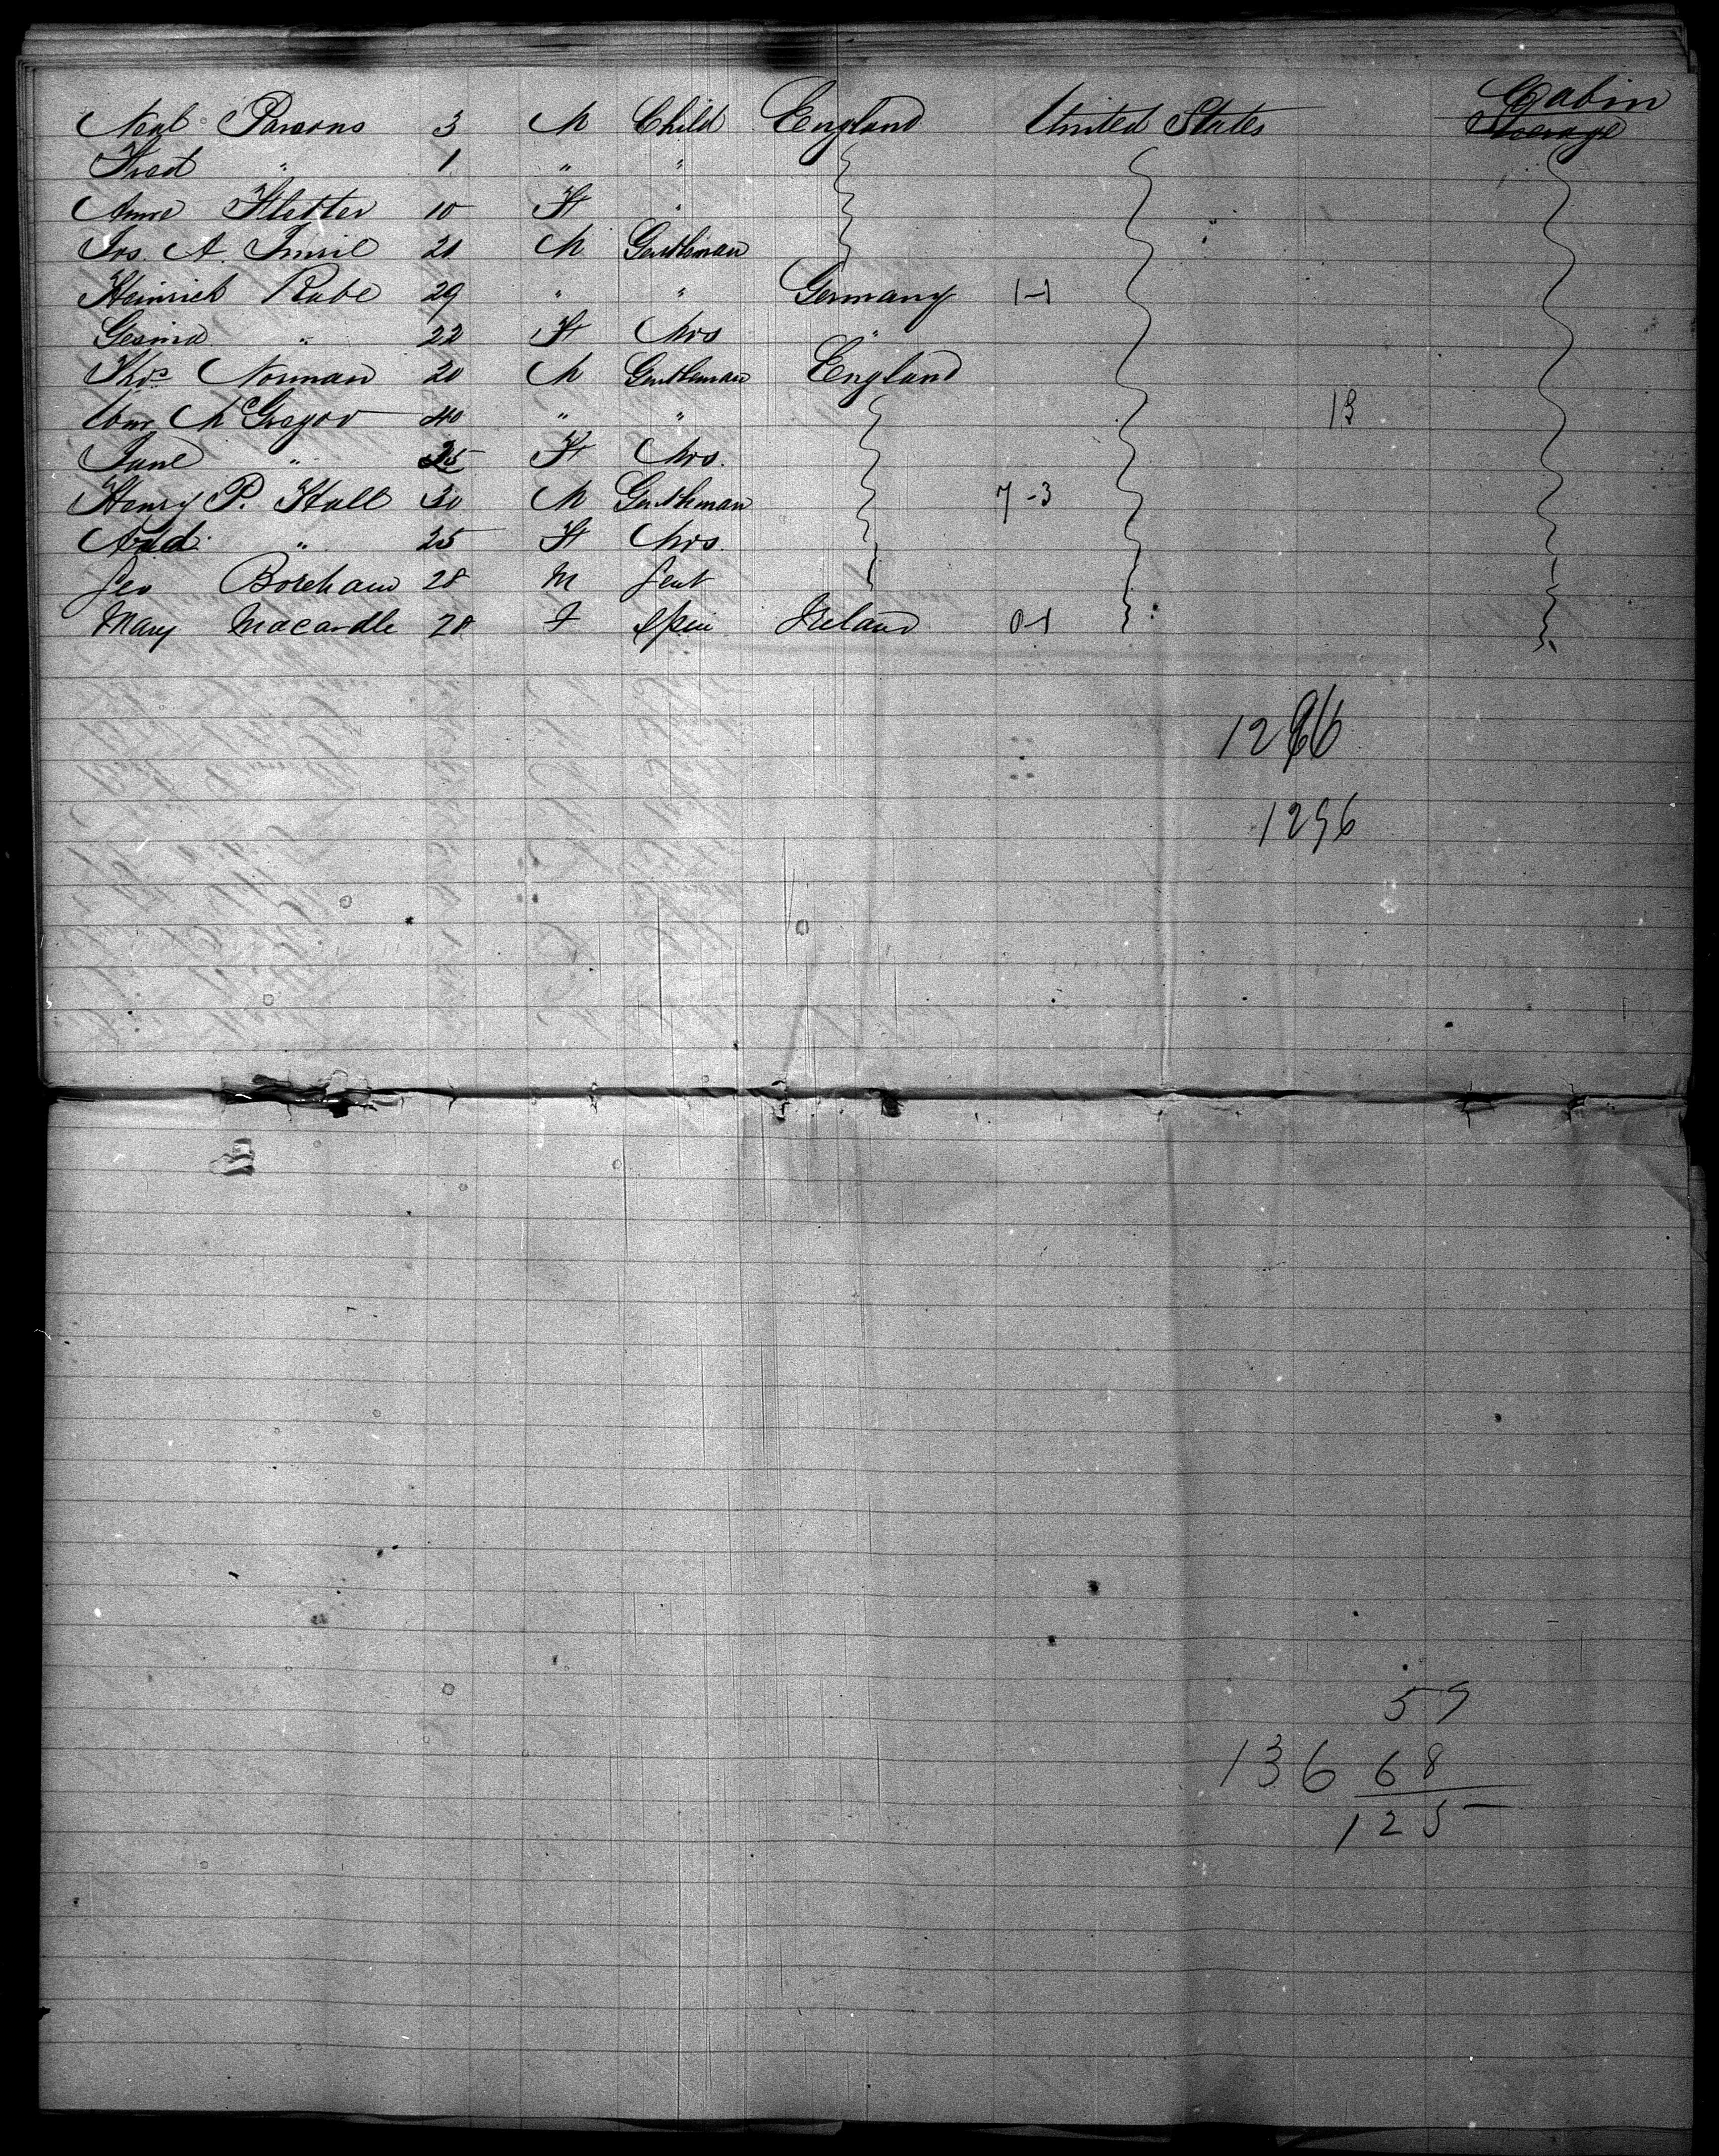 Cabin
Neal Parsons 3 M Child England United States Steerage
Fred " 1 " "
Anne 10 F "
Jos. A. 20 M Gentleman
Heinrich Rube 29 " " Germany 1-1
Gesina " 22 F Mrs "
Thos Norman 20 M Gentleman England
Wm McGregor 40 " " 13
Jane " 25 F Mrs.
Henry P. Hall 30 M Gentleman 7-3
Add. " 25 F Mrs.
Geo Boreham 28 M Gent
Mary Macardle 28 F Spin Ireland 0-1
1296
59
136 68
125